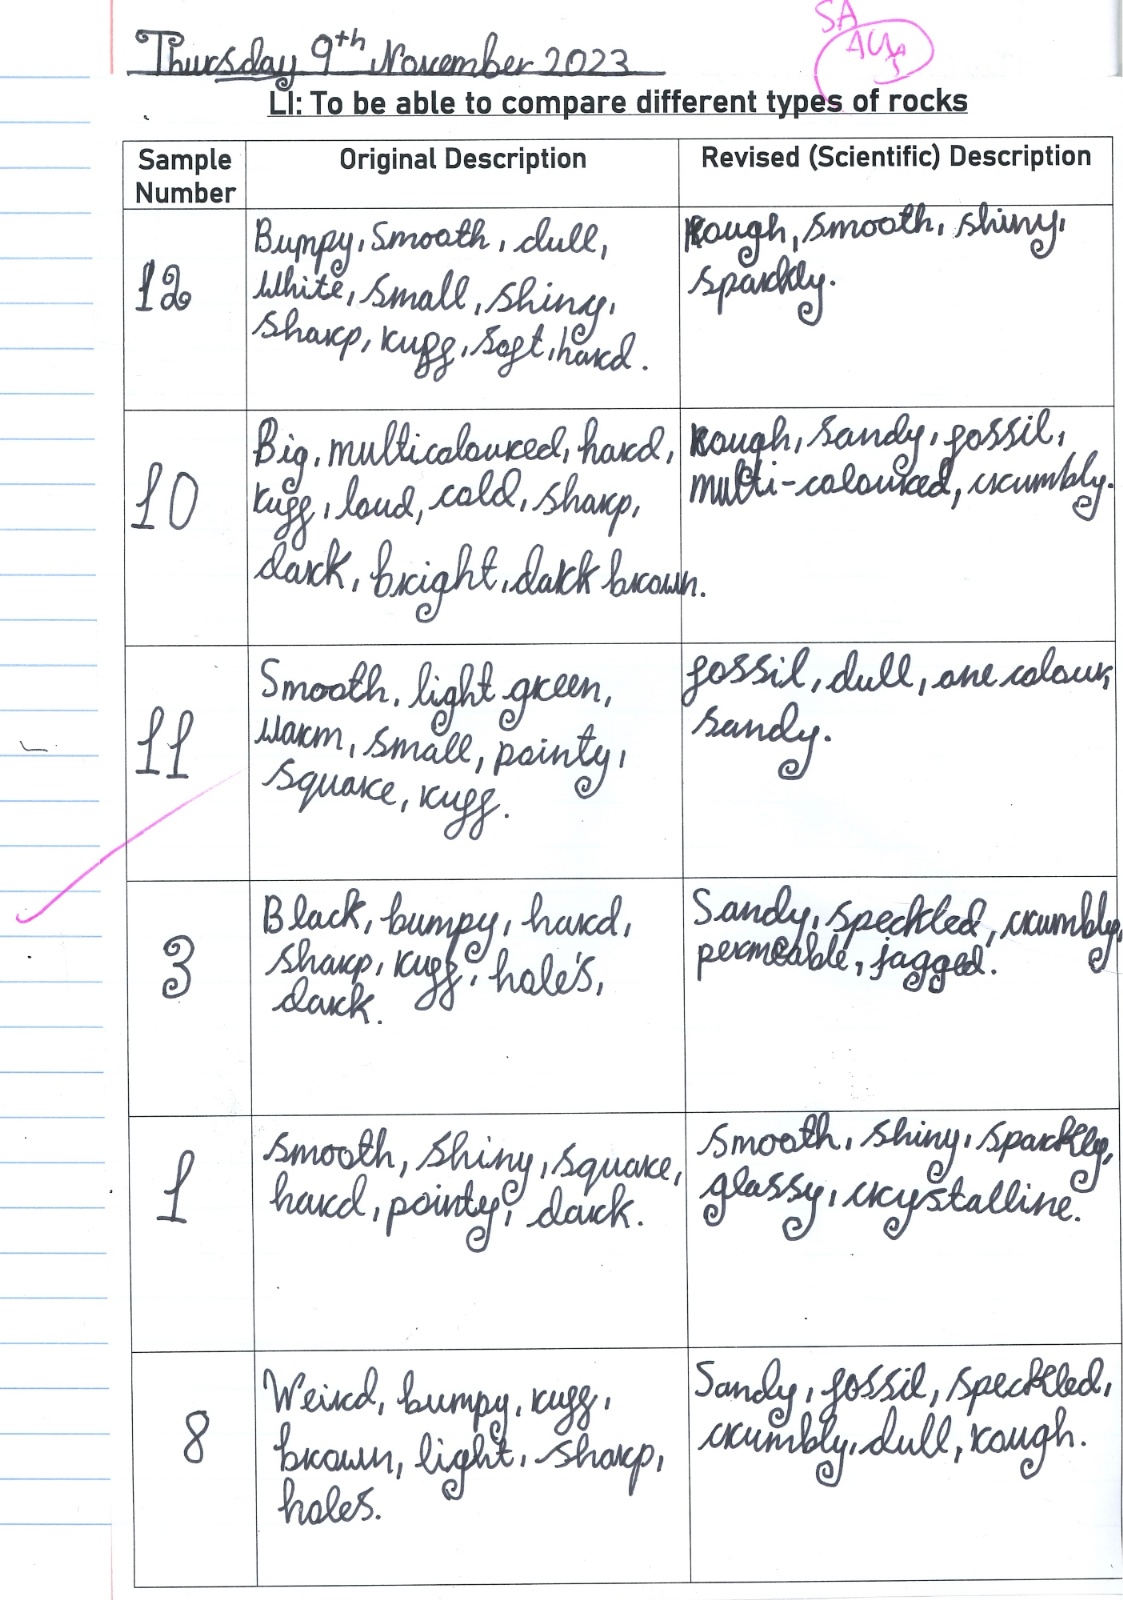 SA
Thursday 9th November 2023
LI: To be able to compare different types of rocks
Sample Number
Original Description
Revised (Scientific) Description
12
Bumpy, smooth, dull,
white, small, shiny,
sharp, ruff, soft, hard.
Rough, smooth, shiny,
sparkly.
10
Big, multicoloured, hard,
ruff, loud, cold, sharp,
dark, bright, dark brown.
Rough, sandy, fossil,
multi-coloured, crumbly.
11
Smooth, light green,
warm, small, pointy,
square, ruff.
fossil, dull, one colour,
sandy.
3
Black, bumpy, hard,
sharp, ruff, hole's,
dark.
Sandy, speckled, crumbly,
permeable, jagged.
1
smooth, shiny, square,
hard, pointy, dark.
smooth, shiny, sparkley,
glassy, crystalline.
8
Weird, bumpy, ruff,
brown, light, sharp,
holes.
Sandy, fossil, speckled,
crumbly, dull, rough.